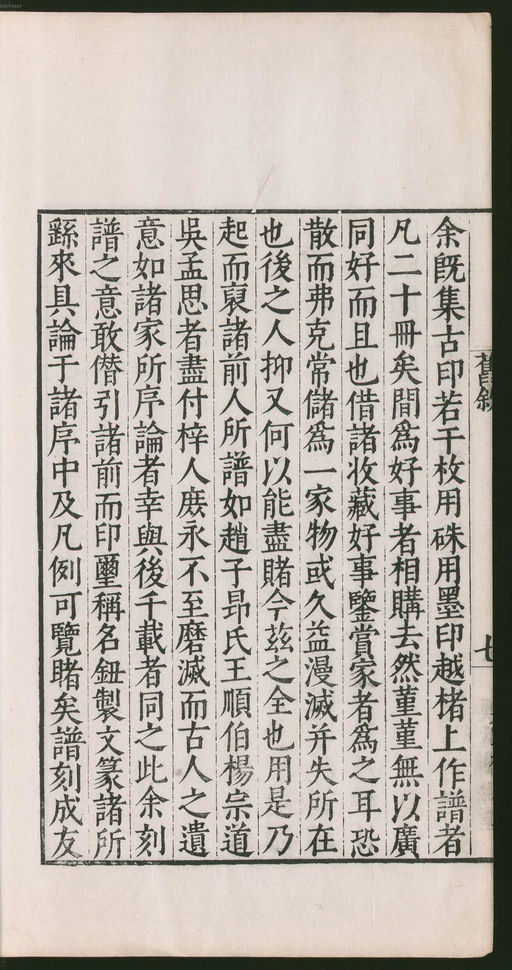 余旣集古印若干枚用硃用墨印越楮上作譜者
凡二十冊矣間爲好事者相購去然蓳蓳無以廣
同好而且也借諸收藏好事鑒賞家者爲之耳恐
散而弗克常儲爲一家物或久益漫滅并失所在
也後之人抑又何以能盡睹今兹之全也用是乃
起而裒諸前人所譜如趙子昻氏王順伯楊宗道
吳孟思者盡付梓人庻永不至磨滅而古人之遺
意如諸家所序論者幸與後千載者同之此余刻
譜之意敢僭引諸前而印璽稱名鈕製文篆諸所
繇來具論于諸序中及凡例可覽睹矣譜刻成友
舊敘
七
00073447